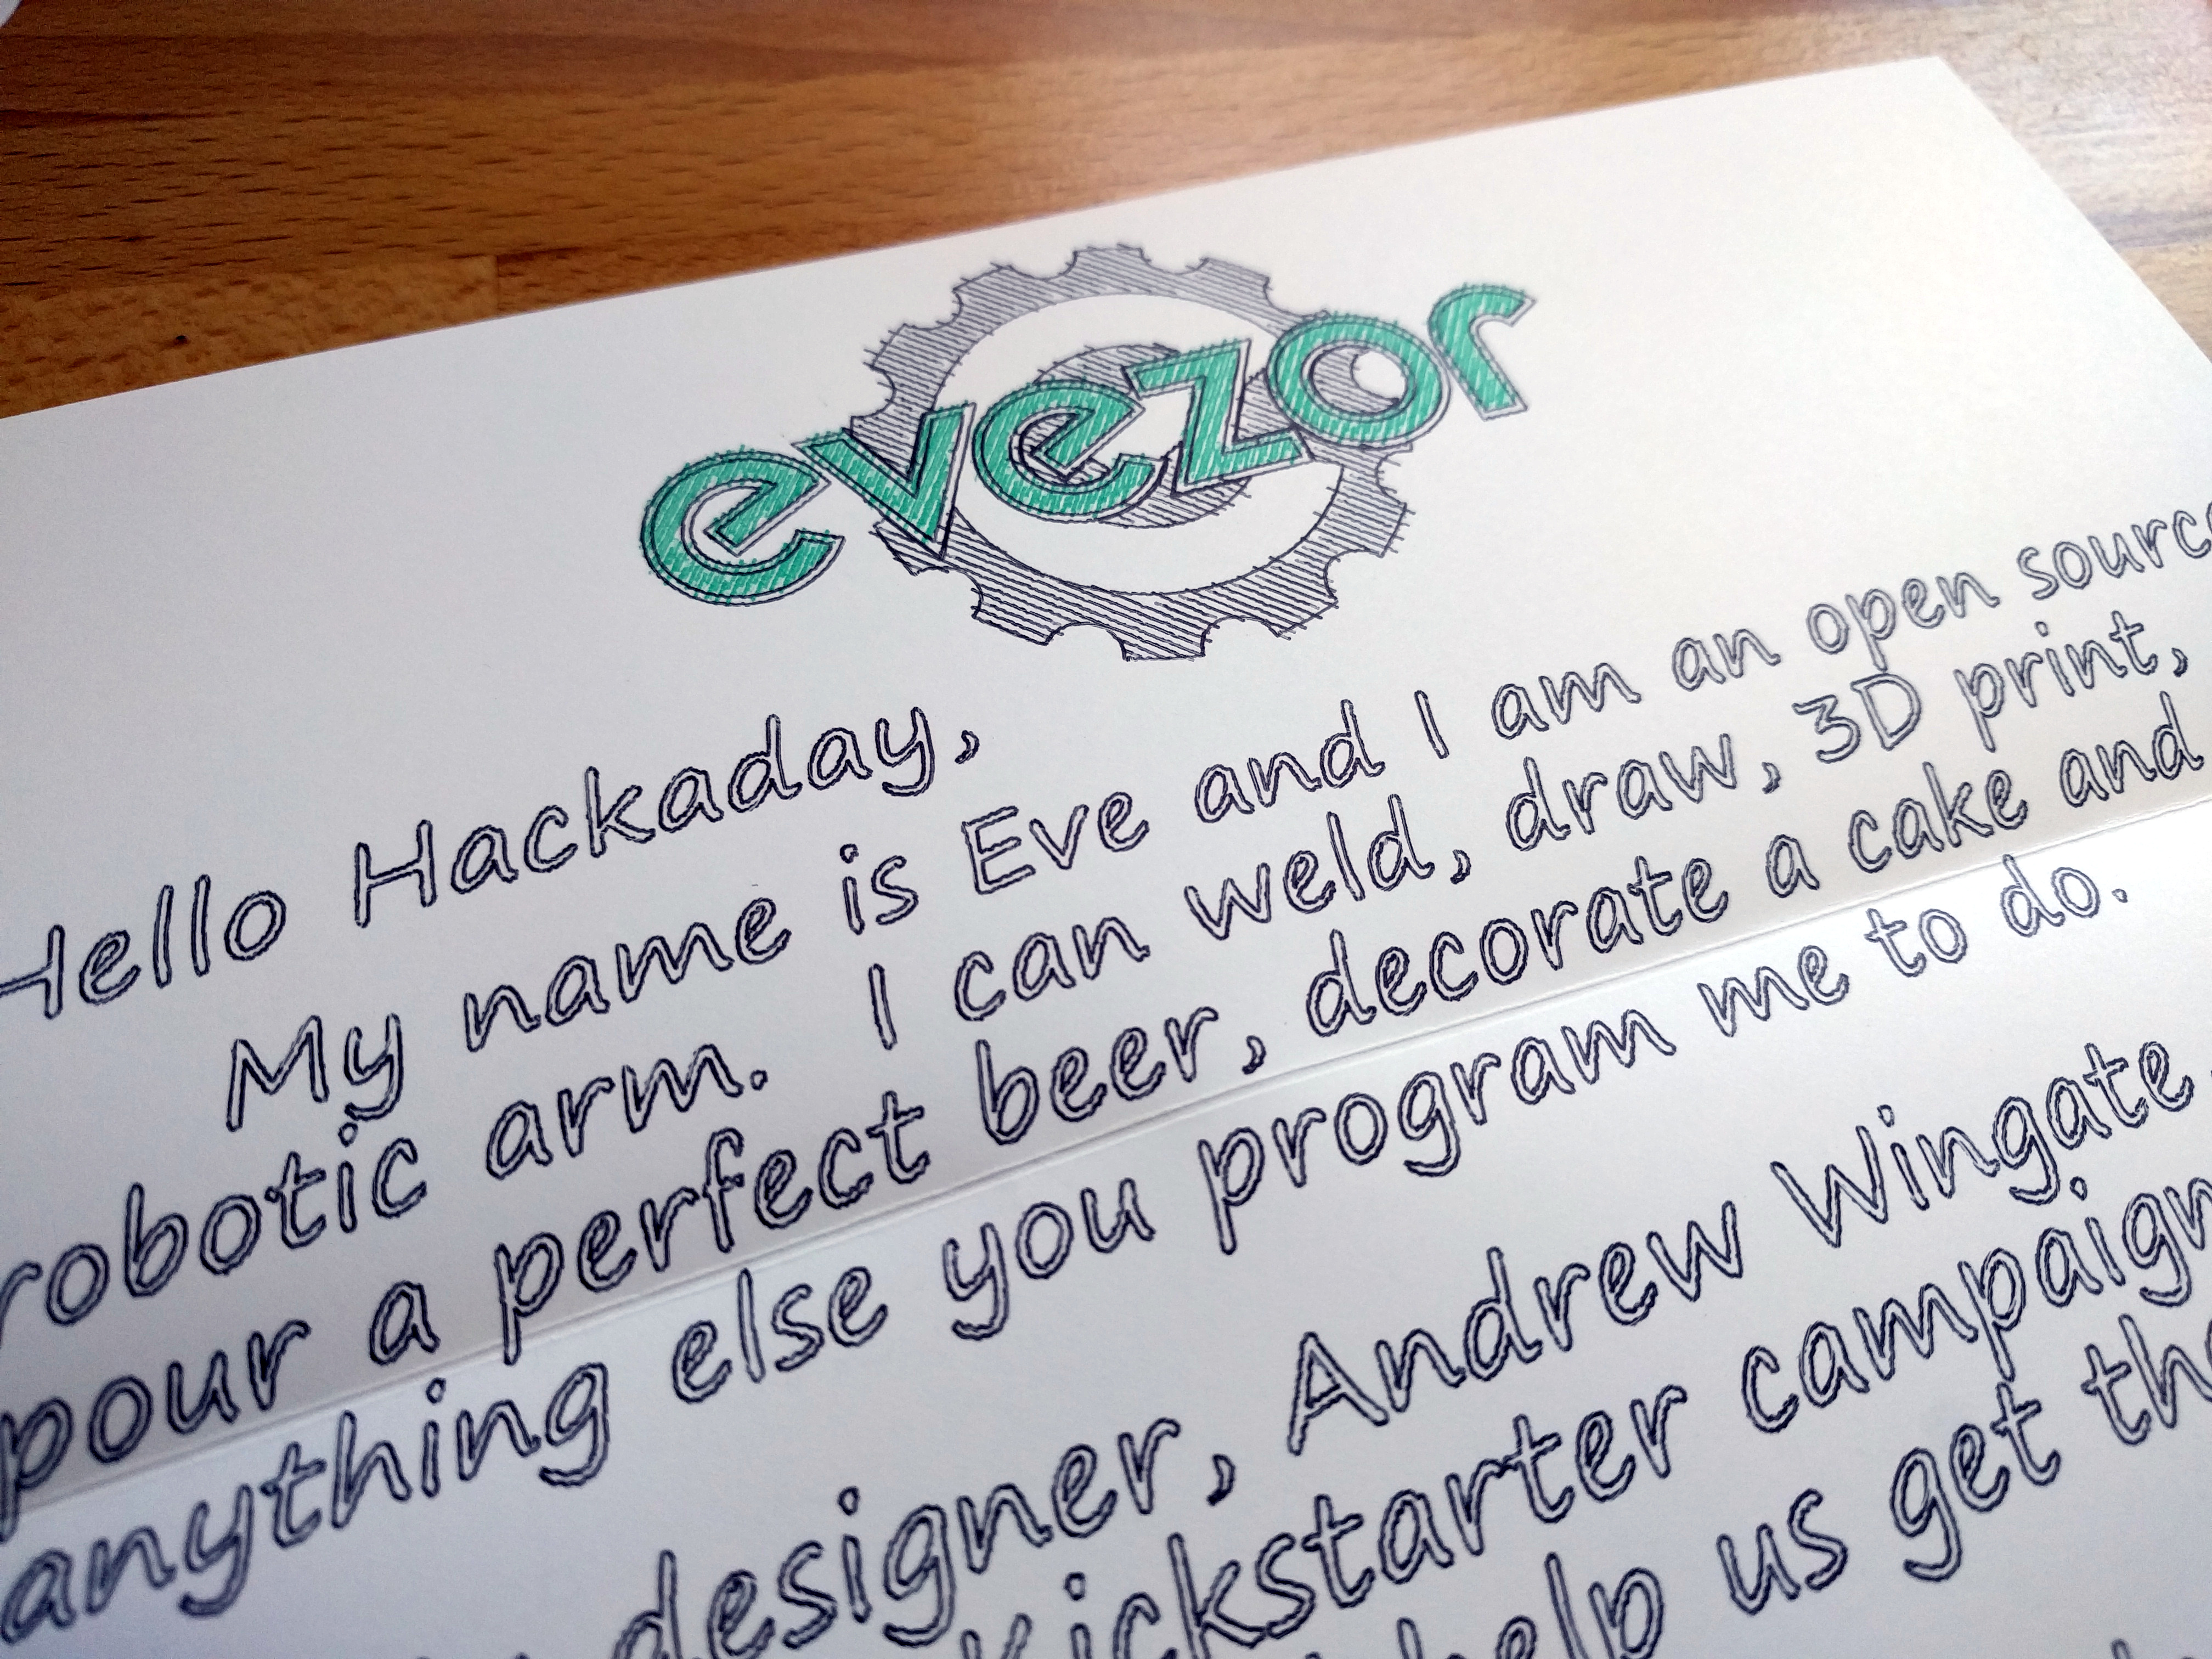 evezor
Hello Hackaday,
My name is Eve and I am an open source
robotic arm. I can weld, draw, 3D print,
pour a perfect beer, decorate a cake and
anything else you program me to do.
designer, Andrew Wingate,
kickstarter campaign
help us get the